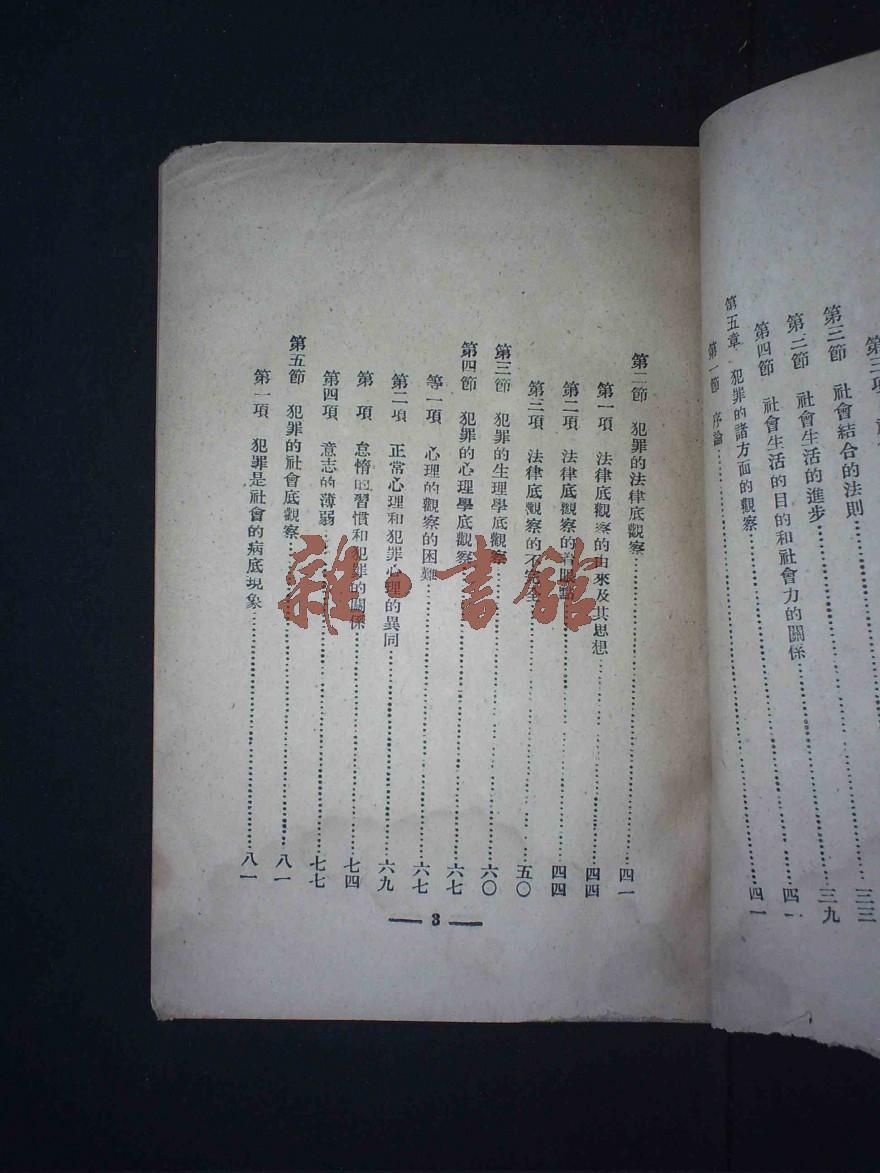 第三節 社會結合的法則……三三
第三節 社會生活的進步……三九
第四節 社會生活的目的和社會力的關係……四一
第五章 犯罪的諸方面的觀察
第一節 序論……四一
第二節 犯罪的法律底觀察……四一
第一項 法律底觀察的由來及其思想……四四
第二項 法律底觀察的着眼點……四四
第三項 法律底觀察的不完全……五〇
第三節 犯罪的生理學底觀察……六〇
第四節 犯罪的心理學底觀察……六七
等一項 心理的觀察的困難……六七
第二項 正常心理和犯罪心理的異同……六九
第 項 怠惰的習慣和犯罪的關係……七四
第四項 意志的薄弱……七七
第五節 犯罪的社會底觀察……八一
第一項 犯罪是社會的病底現象……八一
3
雜·書館